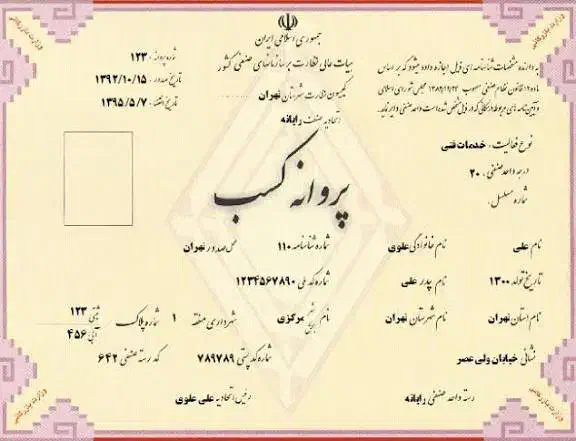 جمهوری اسلامی ایران
هیات عالی نظارت بر سازمانهای صنفی کشور
کمیسیون نظارت شهرستان تهران
اتحادیه صنف رایانه
شماره پروانه : ۱۲۳
تاریخ صدور : ۱۳۹۲/۱۰/۱۵
تاریخ انقضاء : ۱۳۹۵/۵/۷
به دارنده مشخصات شناسنامه ای ذیل اجازه داده میشود که بر اساس
ماده ۱۲ قانون نظام صنفی مصوب ۱۳۸۲/۱۲/۲۴ مجلس شورای اسلامی
و آیین نامه های مربوطه در محلی که در ذیل مشخص شده است واحد صنفی دایر نماید.
نوع فعالیت : خدمات فنی
درجه واحد صنفی : ۲۰
شماره مسلسل :
پروانه کسب
نام علی نام خانوادگی علوی شماره شناسنامه ۱۱۰ محل صدور تهران
تاریخ تولد ۱۳۰۰ نام پدر علی شماره کد ملی ۱۲۳۴۵۶۷۸۹۰
نام استان تهران نام شهرستان تهران نام شهر بخش مرکزی شهرداری منطقه ۱ شماره پلاک ثبتی ۱۲۳ آبی ۴۵۶
نشانی خیابان ولی عصر شماره کد پستی ۷۸۹۷۸۹ کد رسته صنفی ۶۴۲
رسته واحد صنفی رایانه رئیس اتحادیه علی علوی
وزارت بازرگانی
وزارت بازرگانی
وزارت بازرگانی
وزارت بازرگانی